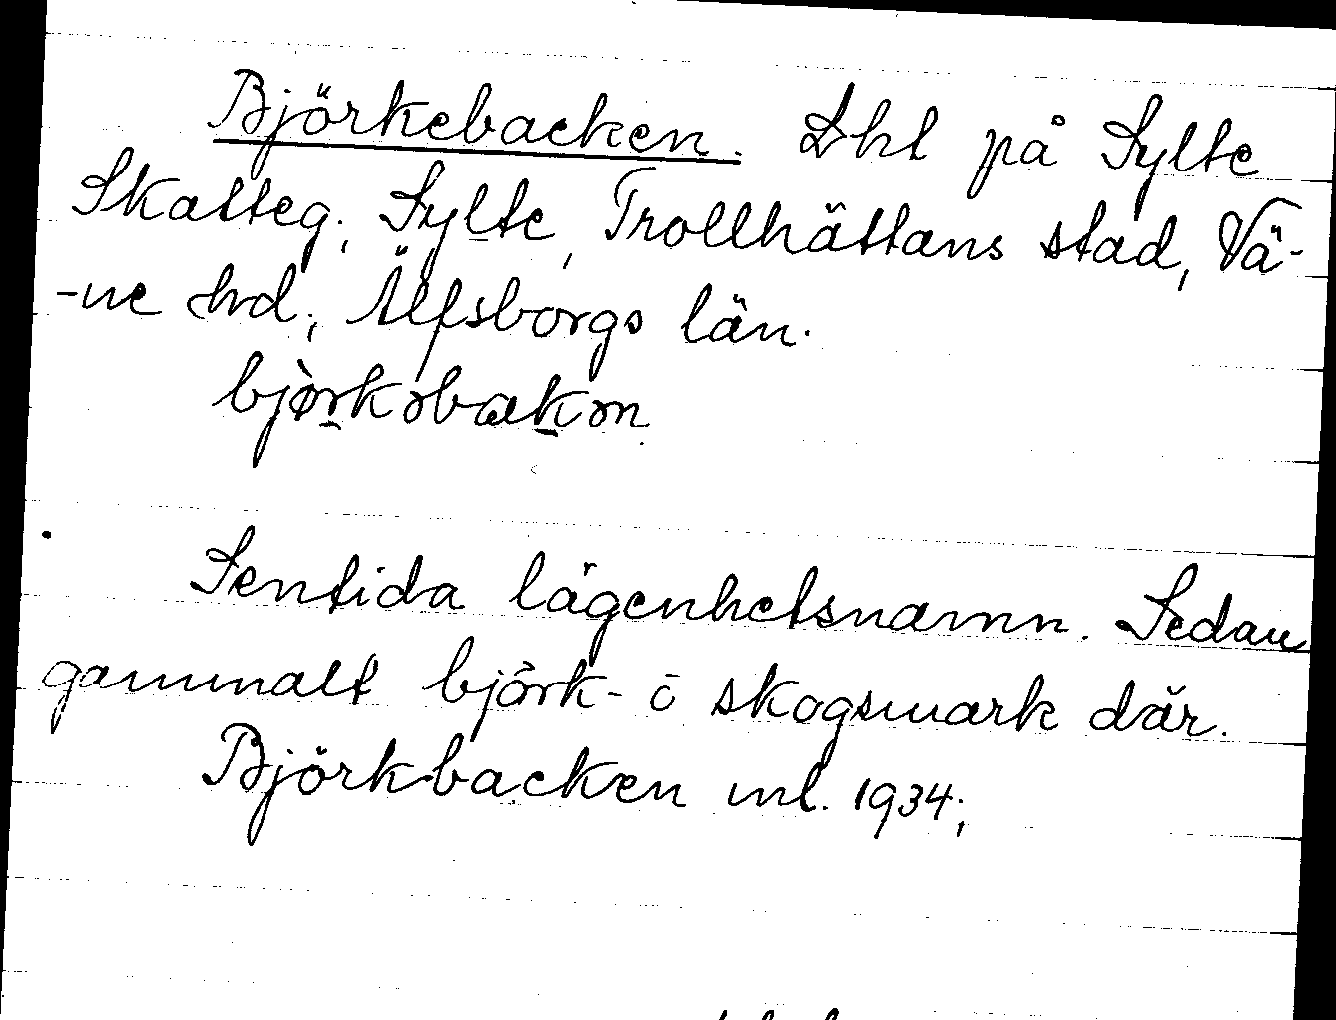 Björkebacken. Lht på Sylte
Skatteg., Sylte, Trollhättans stad, Vä-
-ne hrd, Älfsborgs län.
bjørkəbakən
Sentida lägenhetsnamn. Sedan
gammalt björk- o skogsmark där.
Björkbacken ml. 1934;